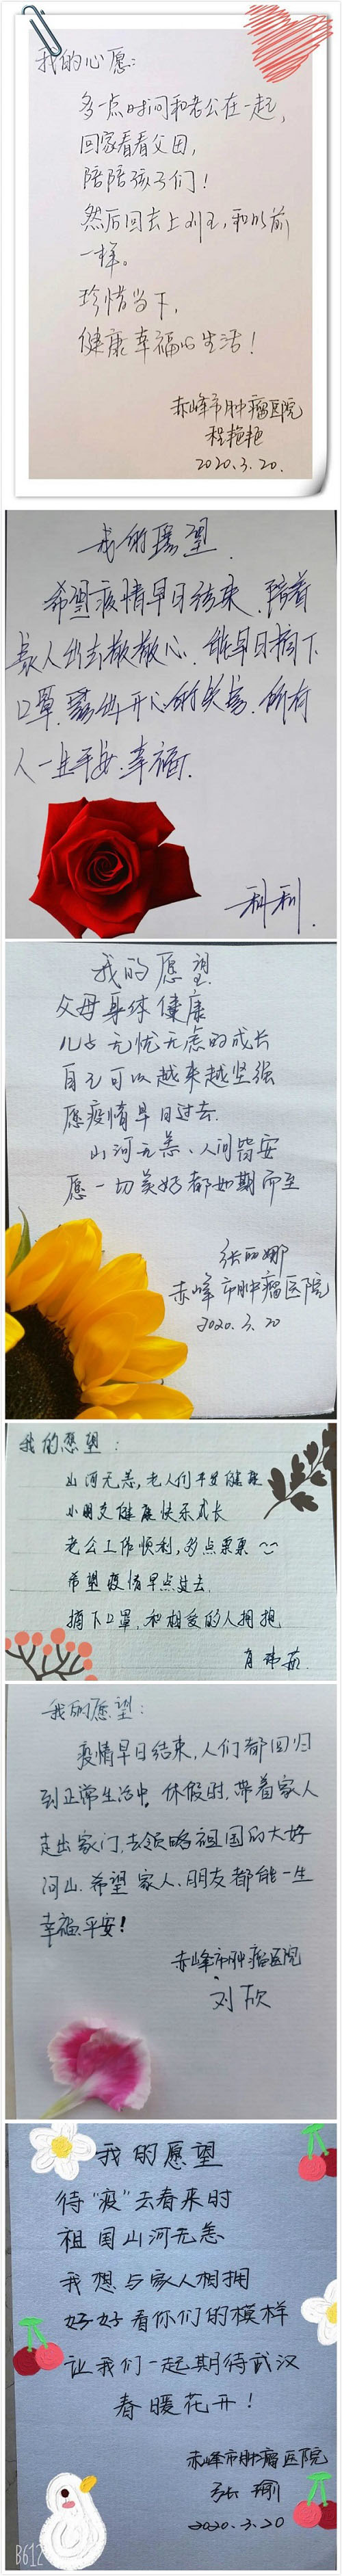 我的心愿:
多一点时间和老公在一起,
回家看看父母,
陪陪孩子们!
然后回去上班,和以前
一样。
珍惜当下,
健康幸福的生活!
赤峰市肿瘤医院
程艳艳
2020.3.20.
我的愿望
希望疫情早日结束.陪着
家人出去散散心.能早日摘下
口罩.露出开心的笑容.所有
人一生平安.幸福.
我的愿望
父母身体健康
儿子无忧无虑的成长
自己可以越来越坚强
愿疫情早日过去.
山河无恙、人间皆安
愿一切美好都如期而至
张丽娜
赤峰市肿瘤医院
2020.3.20
我的愿望:
山河无恙,老人们平安健康
小朋友健康快乐成长
老公工作顺利,多点票票
希望疫情早点过去.
摘下口罩,和相爱的人拥抱
肖
我的愿望:
疫情早日结束,人们都回归
到正常生活中。休假时,带着家人
走出家门,去领略祖国的大好
河山.希望家人、朋友都能一生
幸福、平安!
赤峰市肿瘤医院
刘欣
我的愿望
待"疫"去春来时
祖国山河无恙
我想与家人相拥
好好看你们的模样
让我们一起期待武汉
春暖花开!
赤峰市肿瘤医院
张瑜
2020.3.20
B612